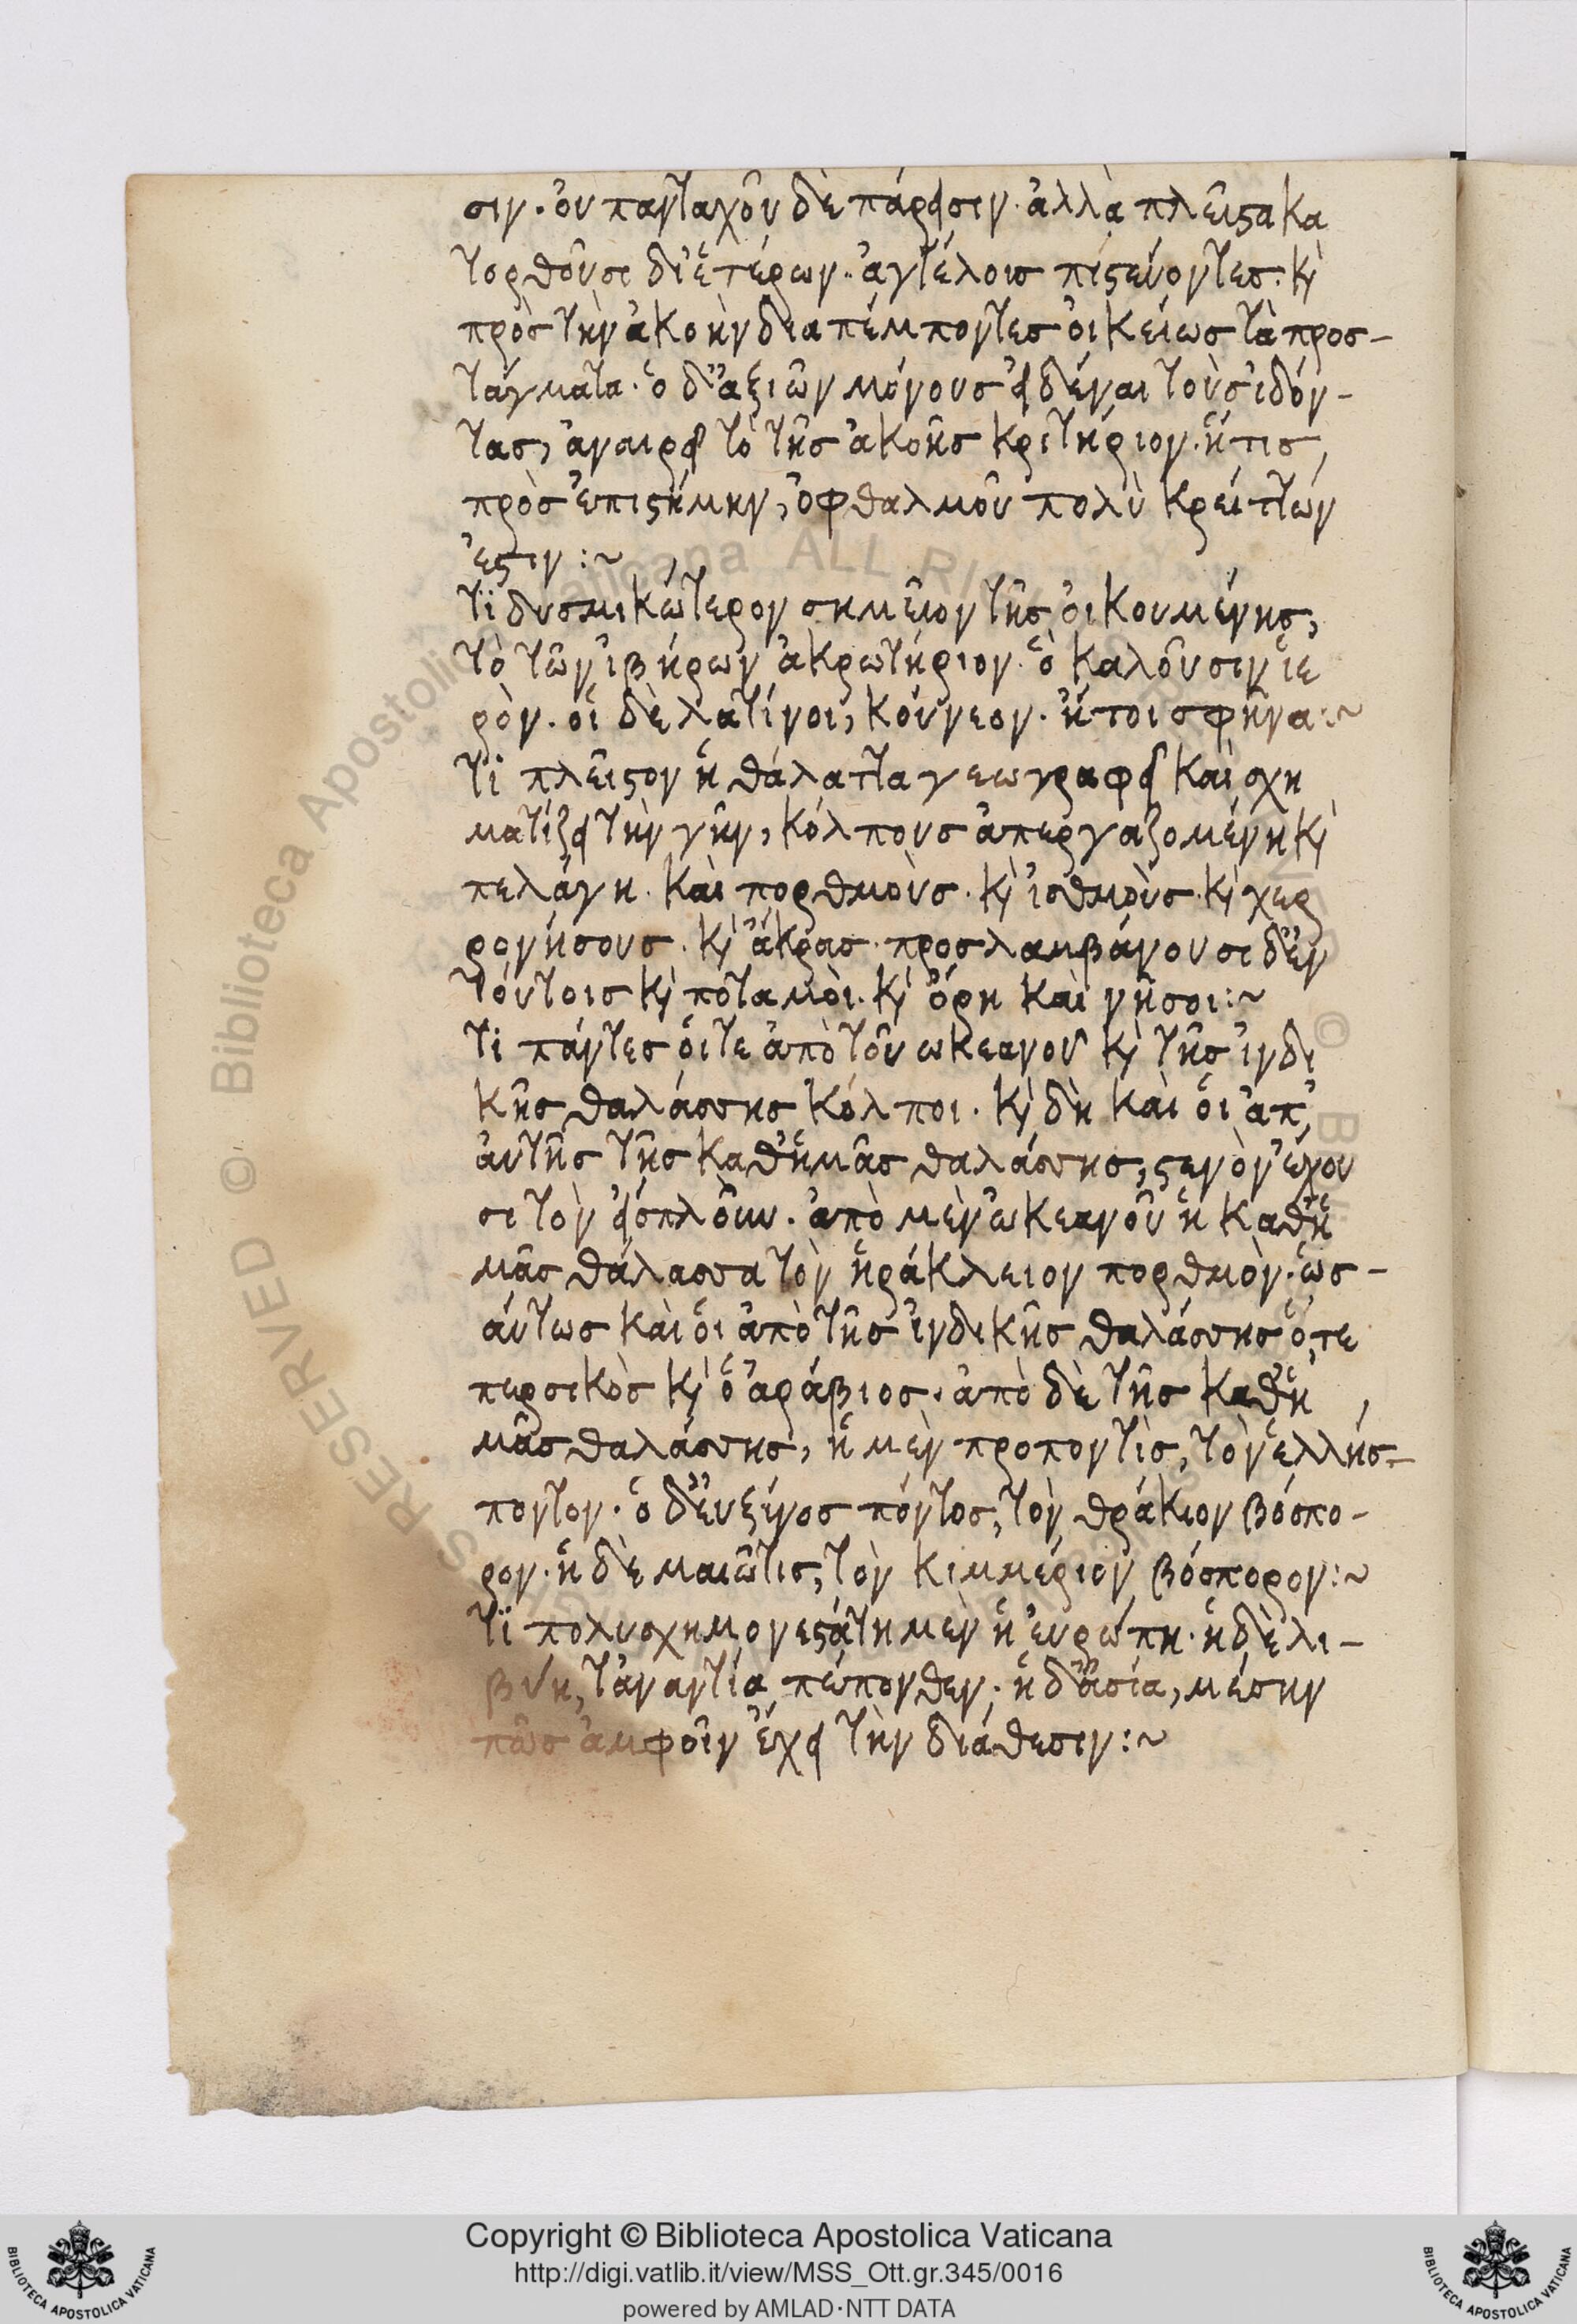 σιν. ὀυ πανταχοῦ δὲ πάρεισιν. ἀλλὰ πλεῖστα κα
τορθοῦσι δι' ἑτέρων. ἀγγέλοις πιστεύοντες. κὶ
πρὸς τὴν ἀκοὴν διαπέμποντες ὀικείως τὰ προσ-
τάγματα. ὁ δ' ἀξιῶν μόνους εἰδέναι τοὺς ἰδόν-
τας, ἀναιρεῖ τὸ τῆς ἀκοῆς κριτήριον. ἥτις,
πρὸς ἐπιστήμην, ὀφθαλμοῦ πολὺ κρείττων
ἐστιν :~
Τϊ δυσμικώτερον σημεῖον τῆς ὀικουμένης,
τὸ τῶν ἰβήρων ἀκρωτήριον. ὃ καλοῦσιν ἱε
ρὸν. οἱ δὲ λατίνοι, κούνεον. ἤτοι σφῆνα :~
Τϊ πλεῖστον ἡ θάλαττα γεωγραφεῖ καὶ σχη
ματίζει τὴν γῆν, κόλπους ἀπεργαζομένη κὶ
πελάγη. καὶ πορθμοὺς. κὶ ἰσθμοὺς. κὶ χερ
ρονήσους. κὶ ἄκρας. προσλαμβάνουσι δ' ἐν
τούτοις κὶ ποταμοὶ. κὶ ὄρη καὶ νῆσοι :~
Τϊ πάντες ὅιτε ἀπὸ τοῦ ωκεανοῦ κὶ τῆς ἰνδι
κῆς θαλάσσης κόλποι. κὶ δὴ καὶ ὁι ἀπ'
ἀυτῆς τῆς καθ' ἡμᾶς θαλάσσης, στενὸν ἔχου
σι τὸν εἴσπλουν. ἀπὸ μὲν ὠκεανοῦ ἡ καθ' ἡ
μᾶς θάλασσα τὸν ἡράκλειον πορθμὸν. ὡσ-
άυτως καὶ ὁι ἀπὸ τῆς ἰνδικῆς θαλάσσης ὅ, τε
περσικὸς κὶ ὁ ἀράβιος. ἀπὸ δὲ τῆς καθ' ἡ
μᾶς θαλάσσης, ἡ μὲν προποντὶς, τὸν ἑλλήσ-
ποντον. ὁ δ' ἐυξεινος πόντος, τὸν θράκιον βόσπο-
ρον. ἡ δὲ μαιῶτις, τὸν κιμμέριον βόσπορον :~
Τϊ πολυσχημονεστάτη μὲν ἡ ἐυρώπη. ἡ δὲ λι-
βύη, τἀναντία πέπονθεν. ἡ δ' ἀσία, μέσην
πῶς ἀμφοῖν ἔχει τὴν διάθεσιν :~
Copyright © Biblioteca Apostolica Vaticana
http://digi.vatlib.it/view/MSS_Ott.gr.345/0016
powered by AMLAD·NTT DATA